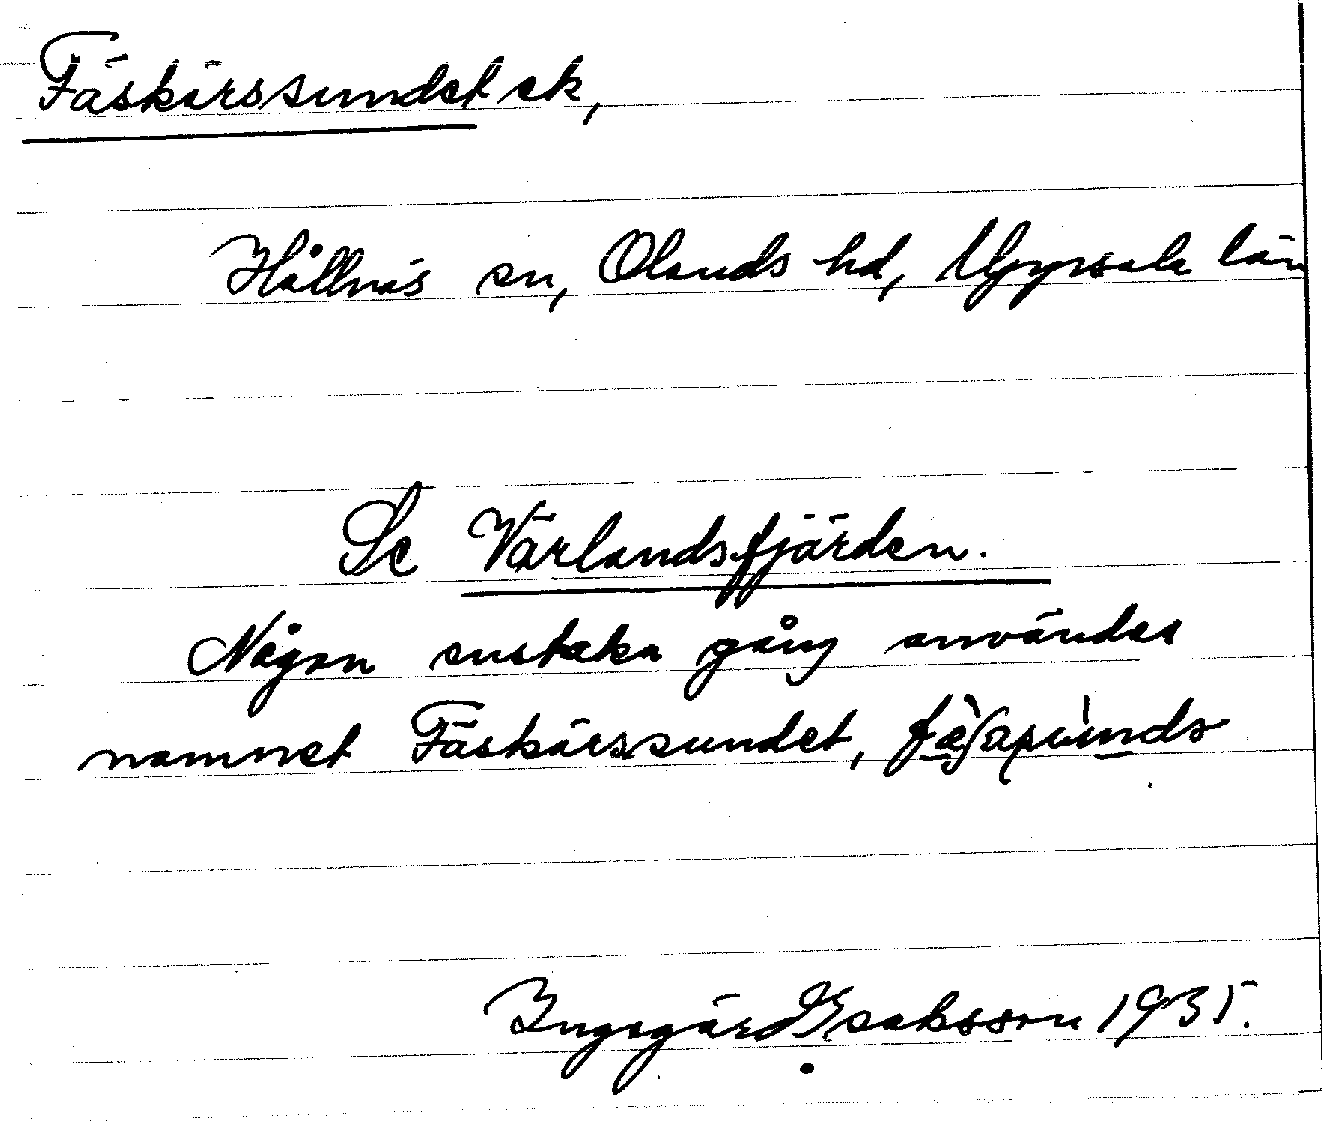 Fäskärssundet ek,
Hållnäs sn, Olands hd, Uppsala län
Se Värlandsfjärden.
Någon enstaka gång användes
namnet Fäskärssundet,
Ingegärd Isaksson 1935.